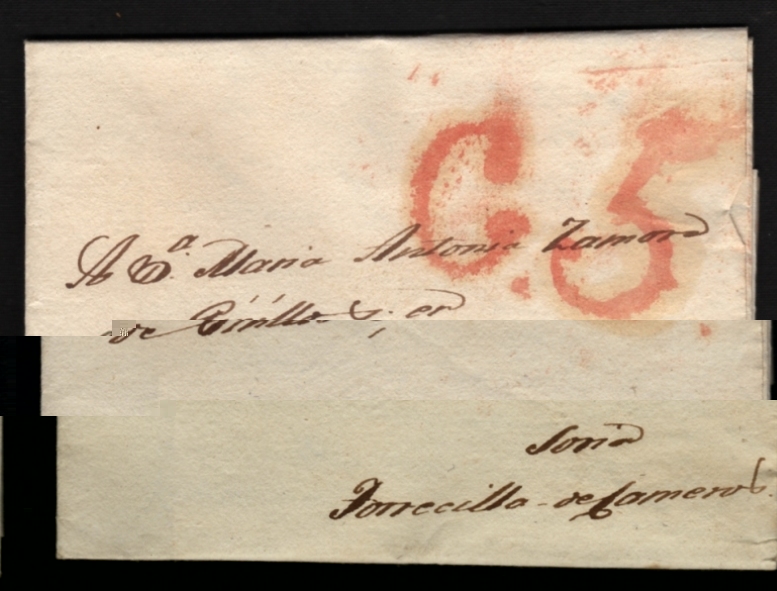 C.5
A D.ª Maria Antonia Zamora
de
en
Soria
Torrecilla de Cameros